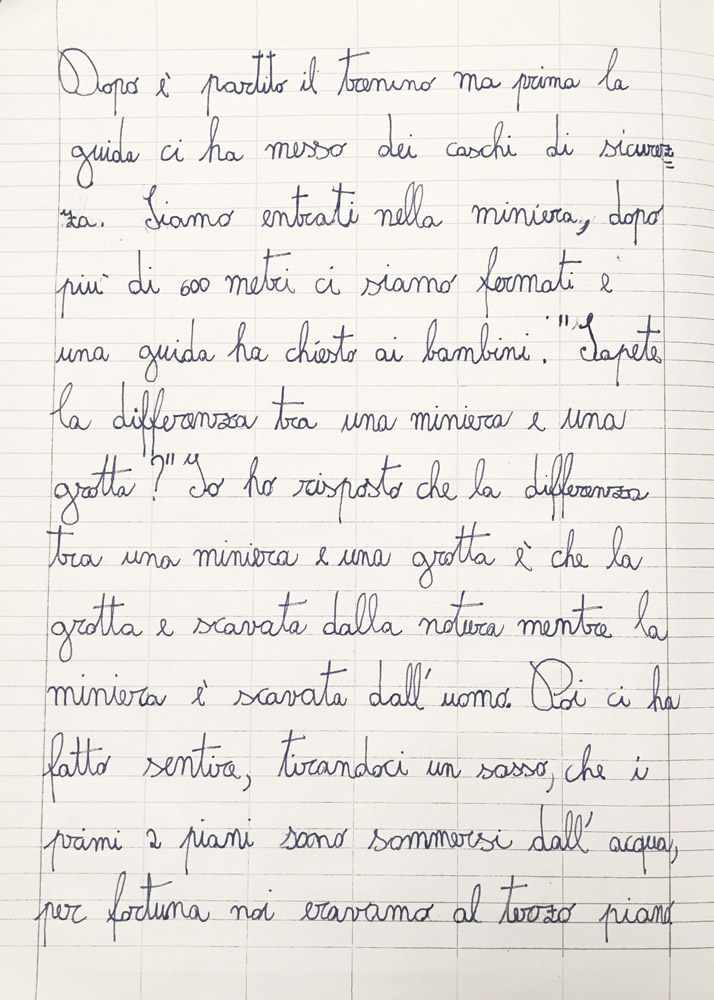 Dopo è partito il trenino ma prima la
guida ci ha messo dei caschi di sicurez
za. Siamo entrati nella miniera, dopo
piu' di 600 metri ci siamo fermati e
una guida ha chiesto ai bambini. "Sapete
la differenza tra una miniera e una
grotta?" "Io ho risposto che la differenza
tra una miniera e una grotta è che la
grotta e scavata dalla natura mentre la
miniera è scavata dall'uomo. Poi ci ha
fatto sentire, tirandoci un sasso, che i
primi 2 piani sono sommersi dall'acqua,
per fortuna noi eravamo al terzo piano